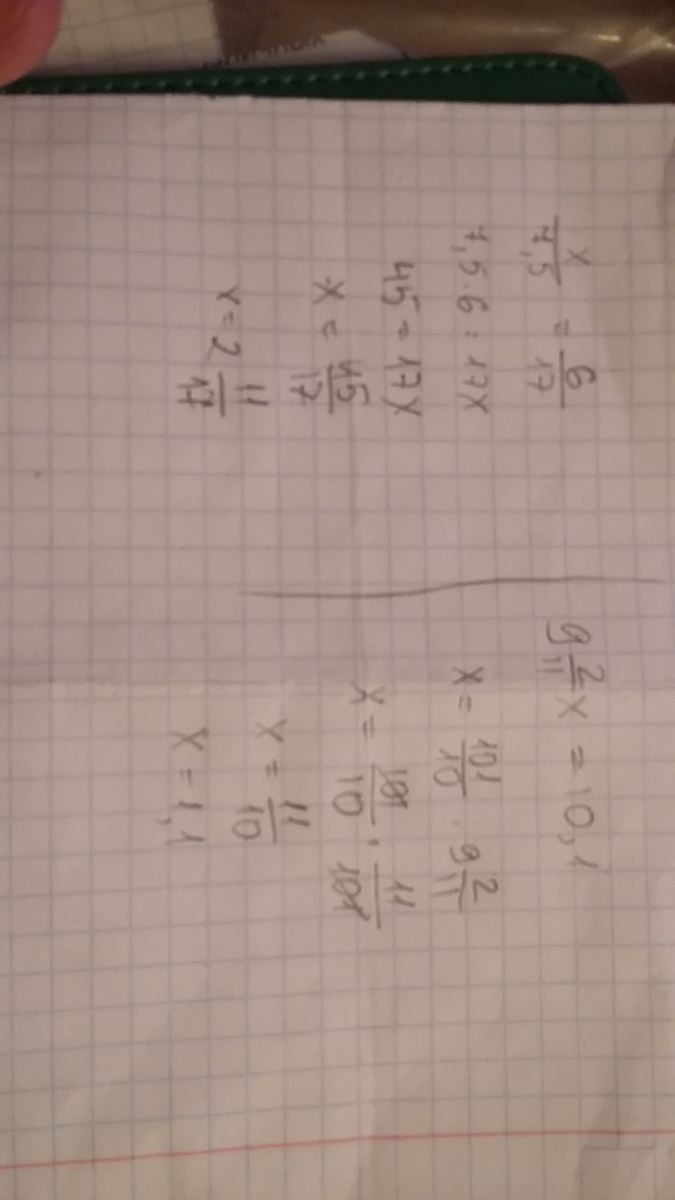 x/7,5 = 6/17
7,5 · 6 = 17x
45 = 17x
x = 45/17
x = 2 11/17
9 2/11 x = 10,1
x = 101/10 : 9 2/11
x = 101/10 · 11/101
x = 11/10
x = 1,1